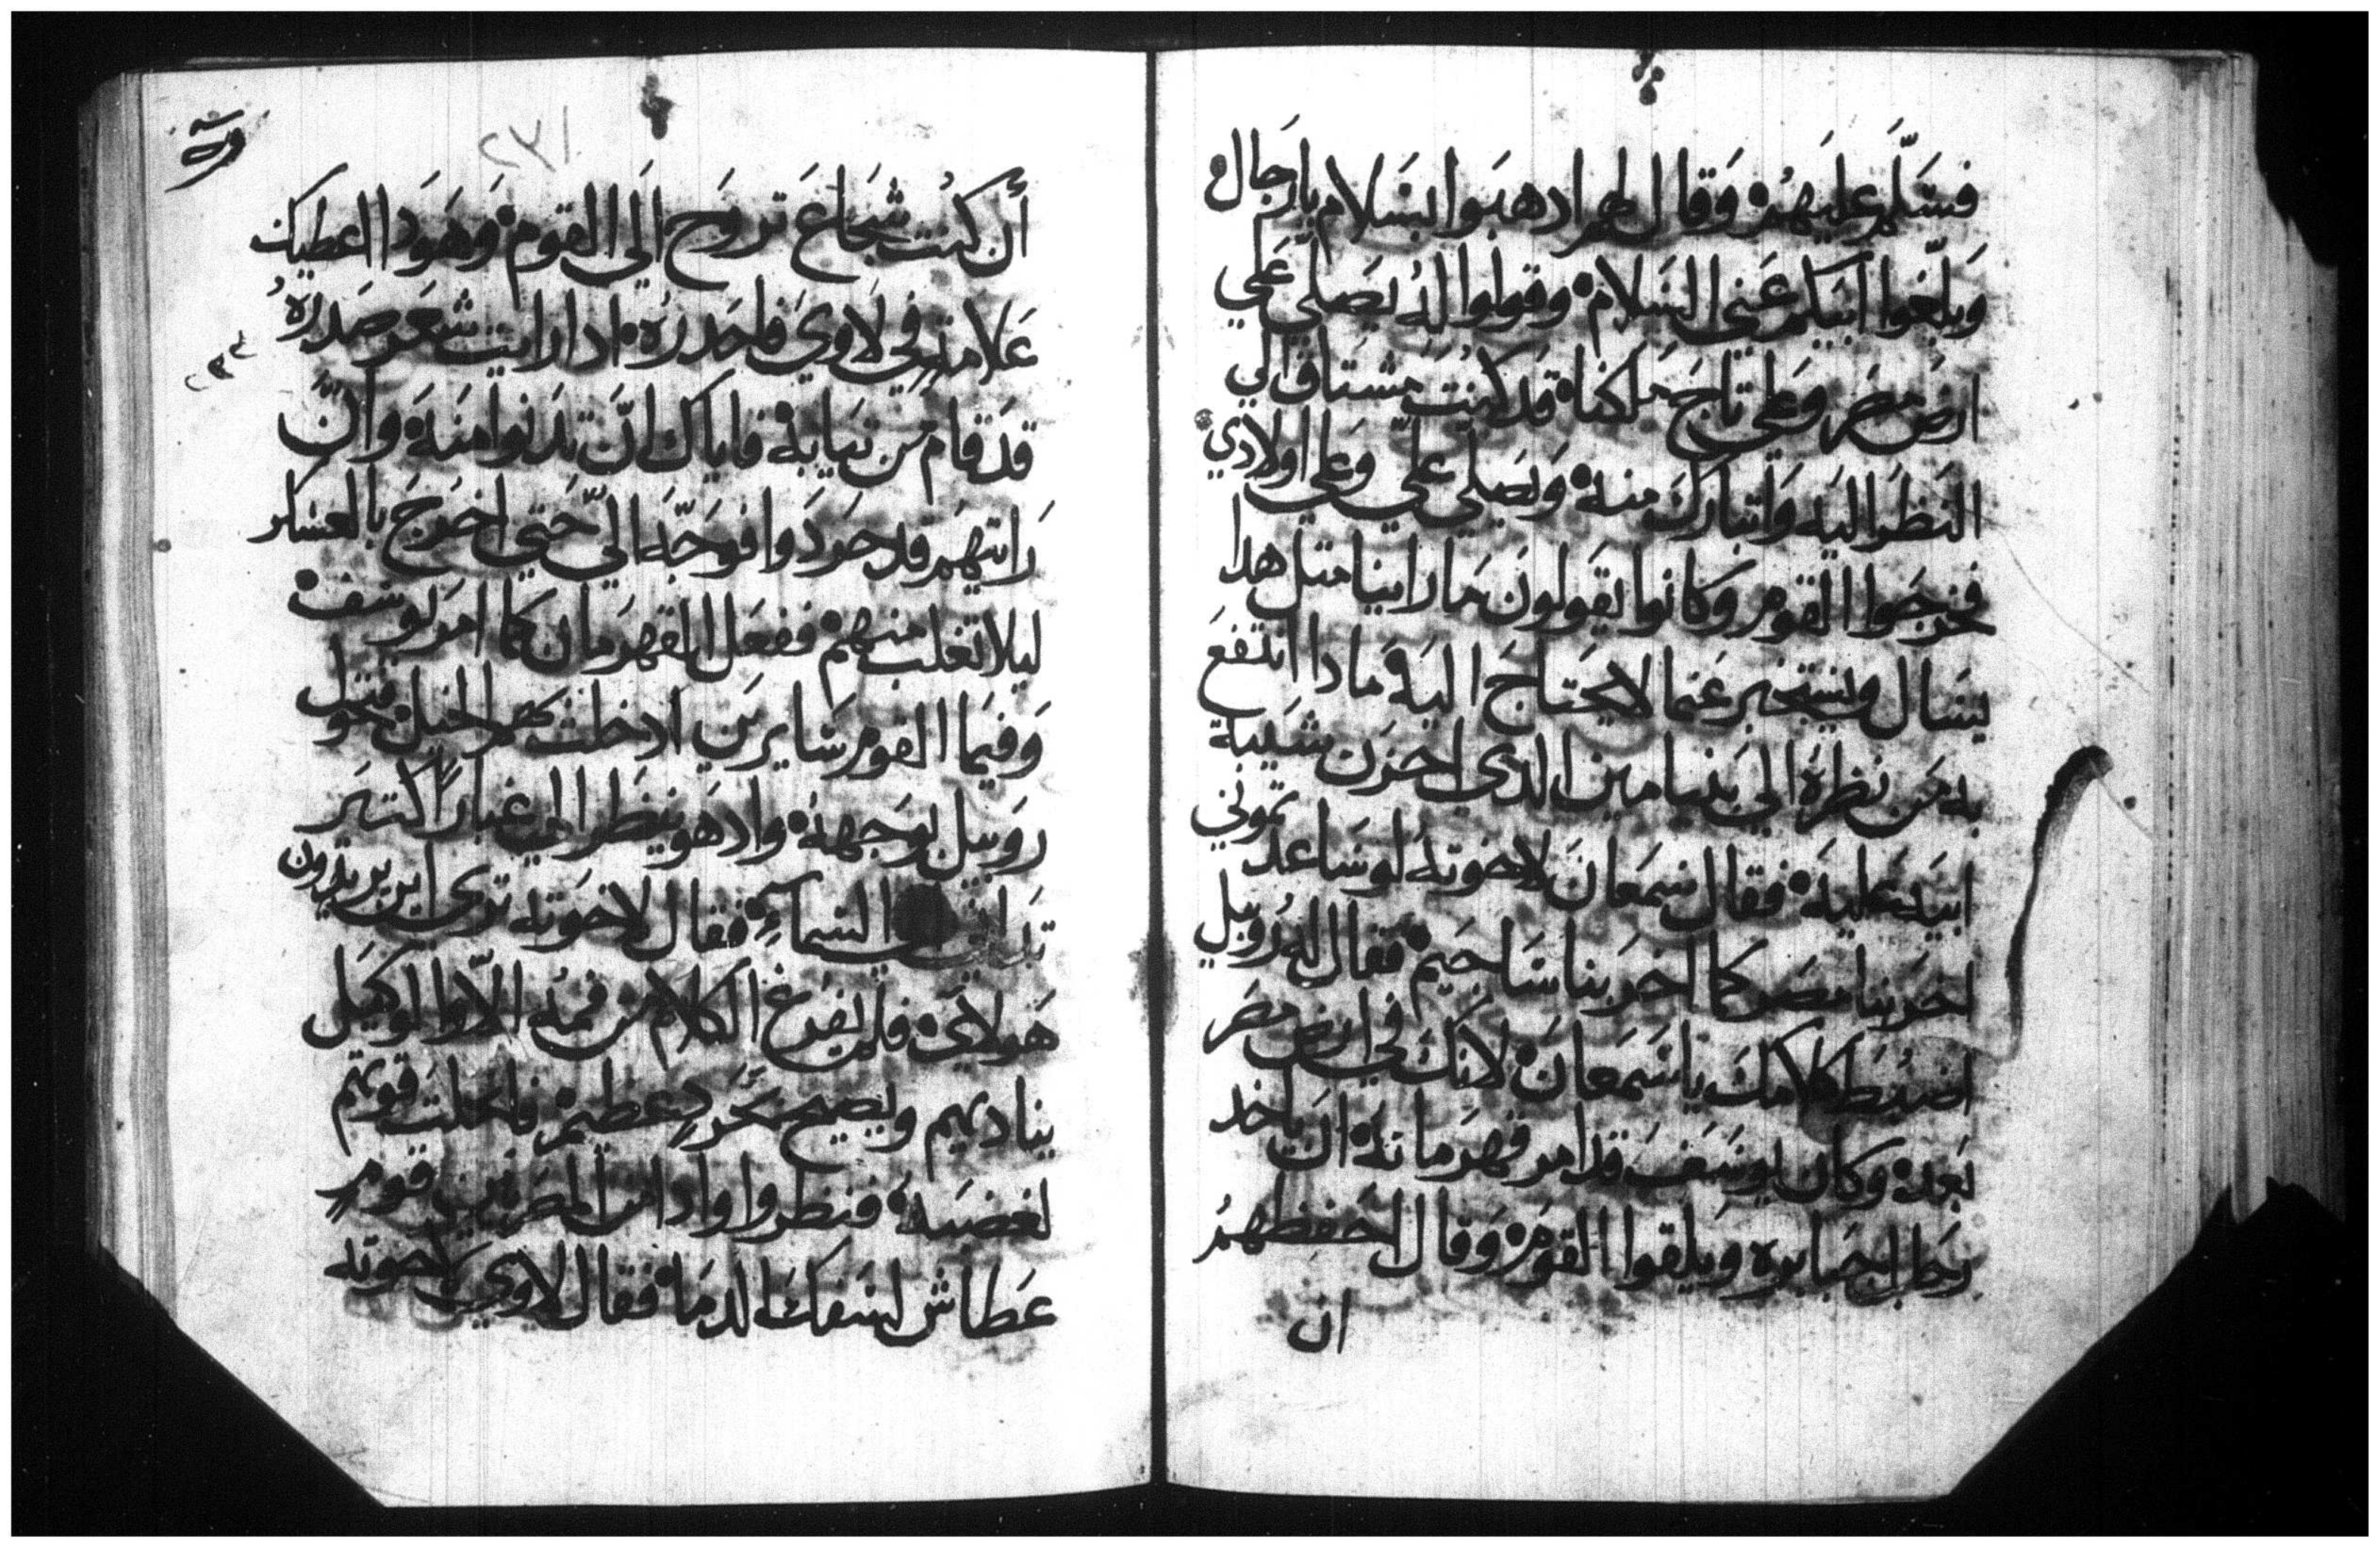 فسَلّم عليهم وقال لهم ادهبوا بسَلام يا رجال
وبلّغوا ابيكم عني السَلام وقولوا له يصَلي علي
ارض مصر وعلي تاج ملكنا قد كنت مشتاق الي
النظر اليه واتبارك منه ويصلي علي وعلي اولادي
فخرجوا القوم وكانوا يقولون ما راينا متل هدا
يسَال ويستخبر عما لا يحتاج اليه ما دا انتفع
به من نظره الي بنيامين الدي احزن شيبة
ابيه عليه فقال شمعان لاخوته لو ساعدتموني
اخربنا مصر كما اخربنا ساجيم فقال له روبيل
اضبط كلامك يا شمعان لانك في ارض مصر
بعد وكان يوسف قد امر قهرمانه ان ياخد
جبابره ويلقوا القوم وقال احفظهم
ان
٢٣١
أن كنت شجاع تروح الَي القوم وهودا اعطيك
علامته في لاوي فاحدره ادا رايت شعر صدره
قد قام من تيابه فاياك انّ تدنوا منه وان
رايتهم قد حردوا فوجّه اليّ حتي اخرج بالعساكر
ليلا تغلب منهم ففعل القهرمان كما امر يوسف
وفيما القوم سايرين ادخلت بهم الخيل فتحول
روبيل بوجهه واد هو ينظر الي غباراً كتير
السماء فقال لاخوته تري اين يريدون
هولاي فلم يفرغ الكلام من فمه الّا والوكيل
يناديهم ويصيح بحرد عظيم فانحلت قوتهم
لغضبه فنظروا وادا من المصريين قوم
عطاش لسفك الدما فقال لاوي لاخوته